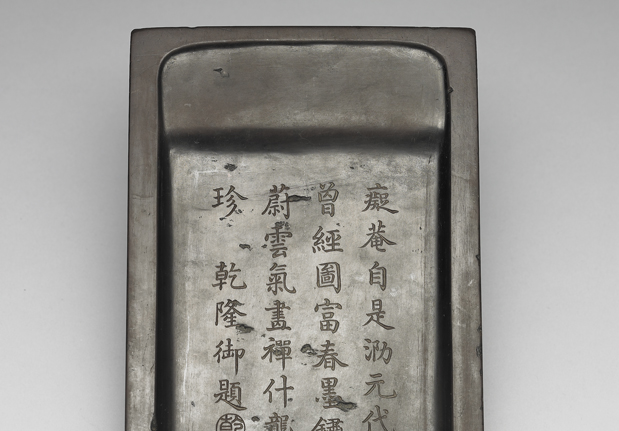 癡菴自是沕元代
曾經圖富春墨鏽
蔚雲氣畫禪什龍
珍 乾隆御題
乾